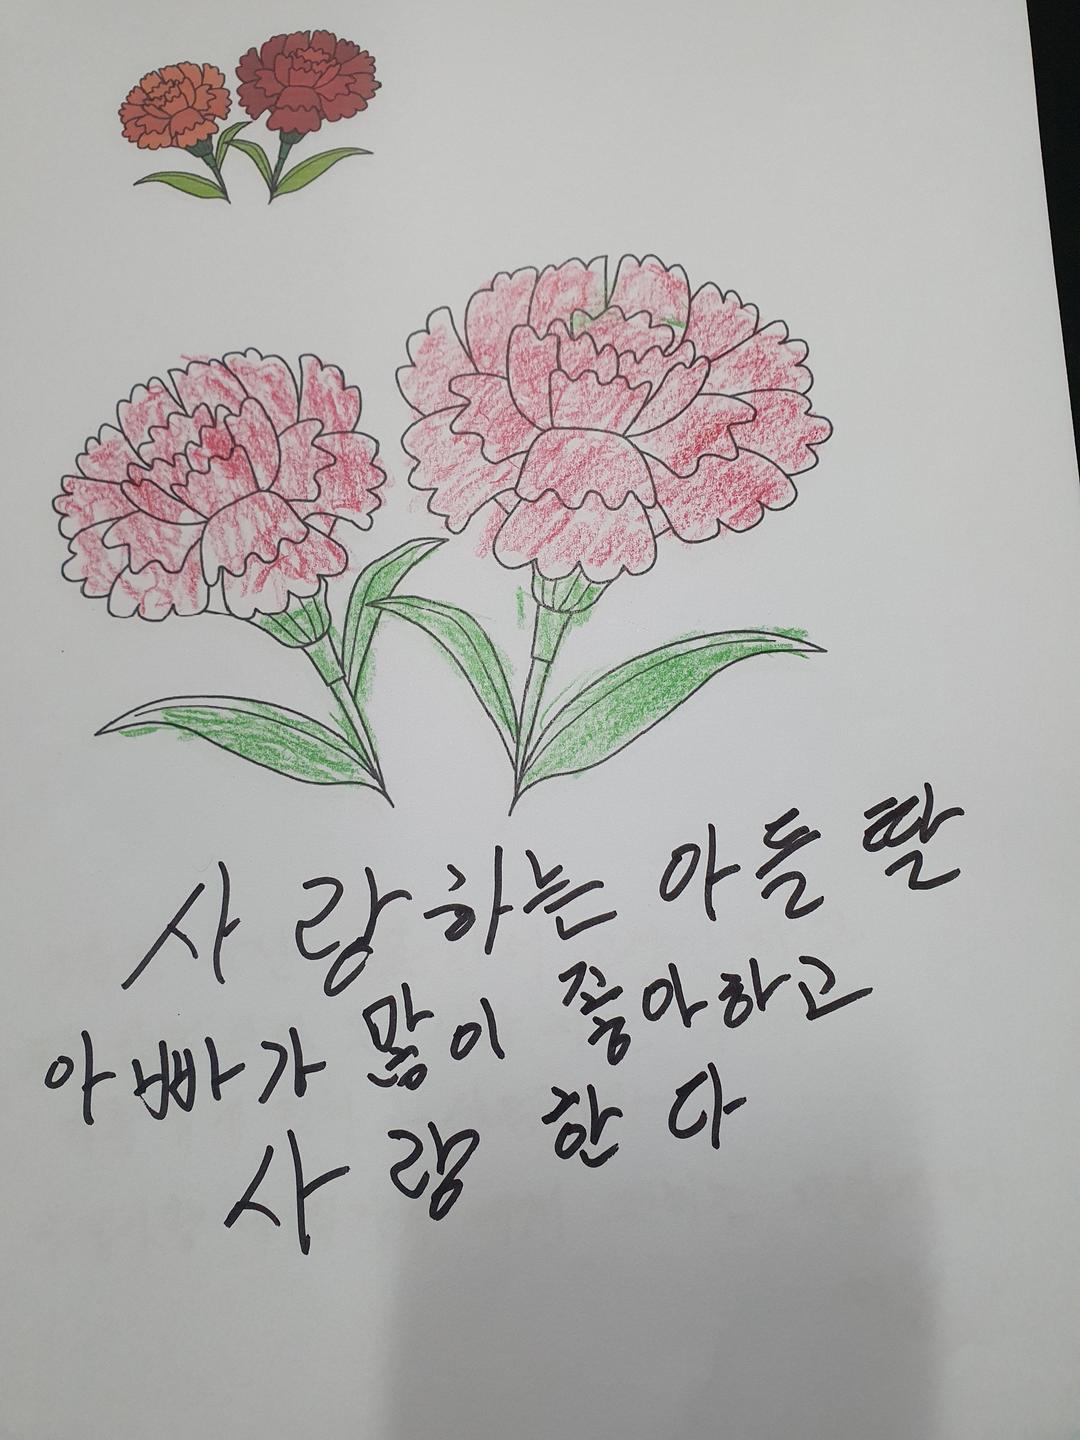 사랑하는 아들 딸
아빠가 많이 좋아하고
사랑 한다